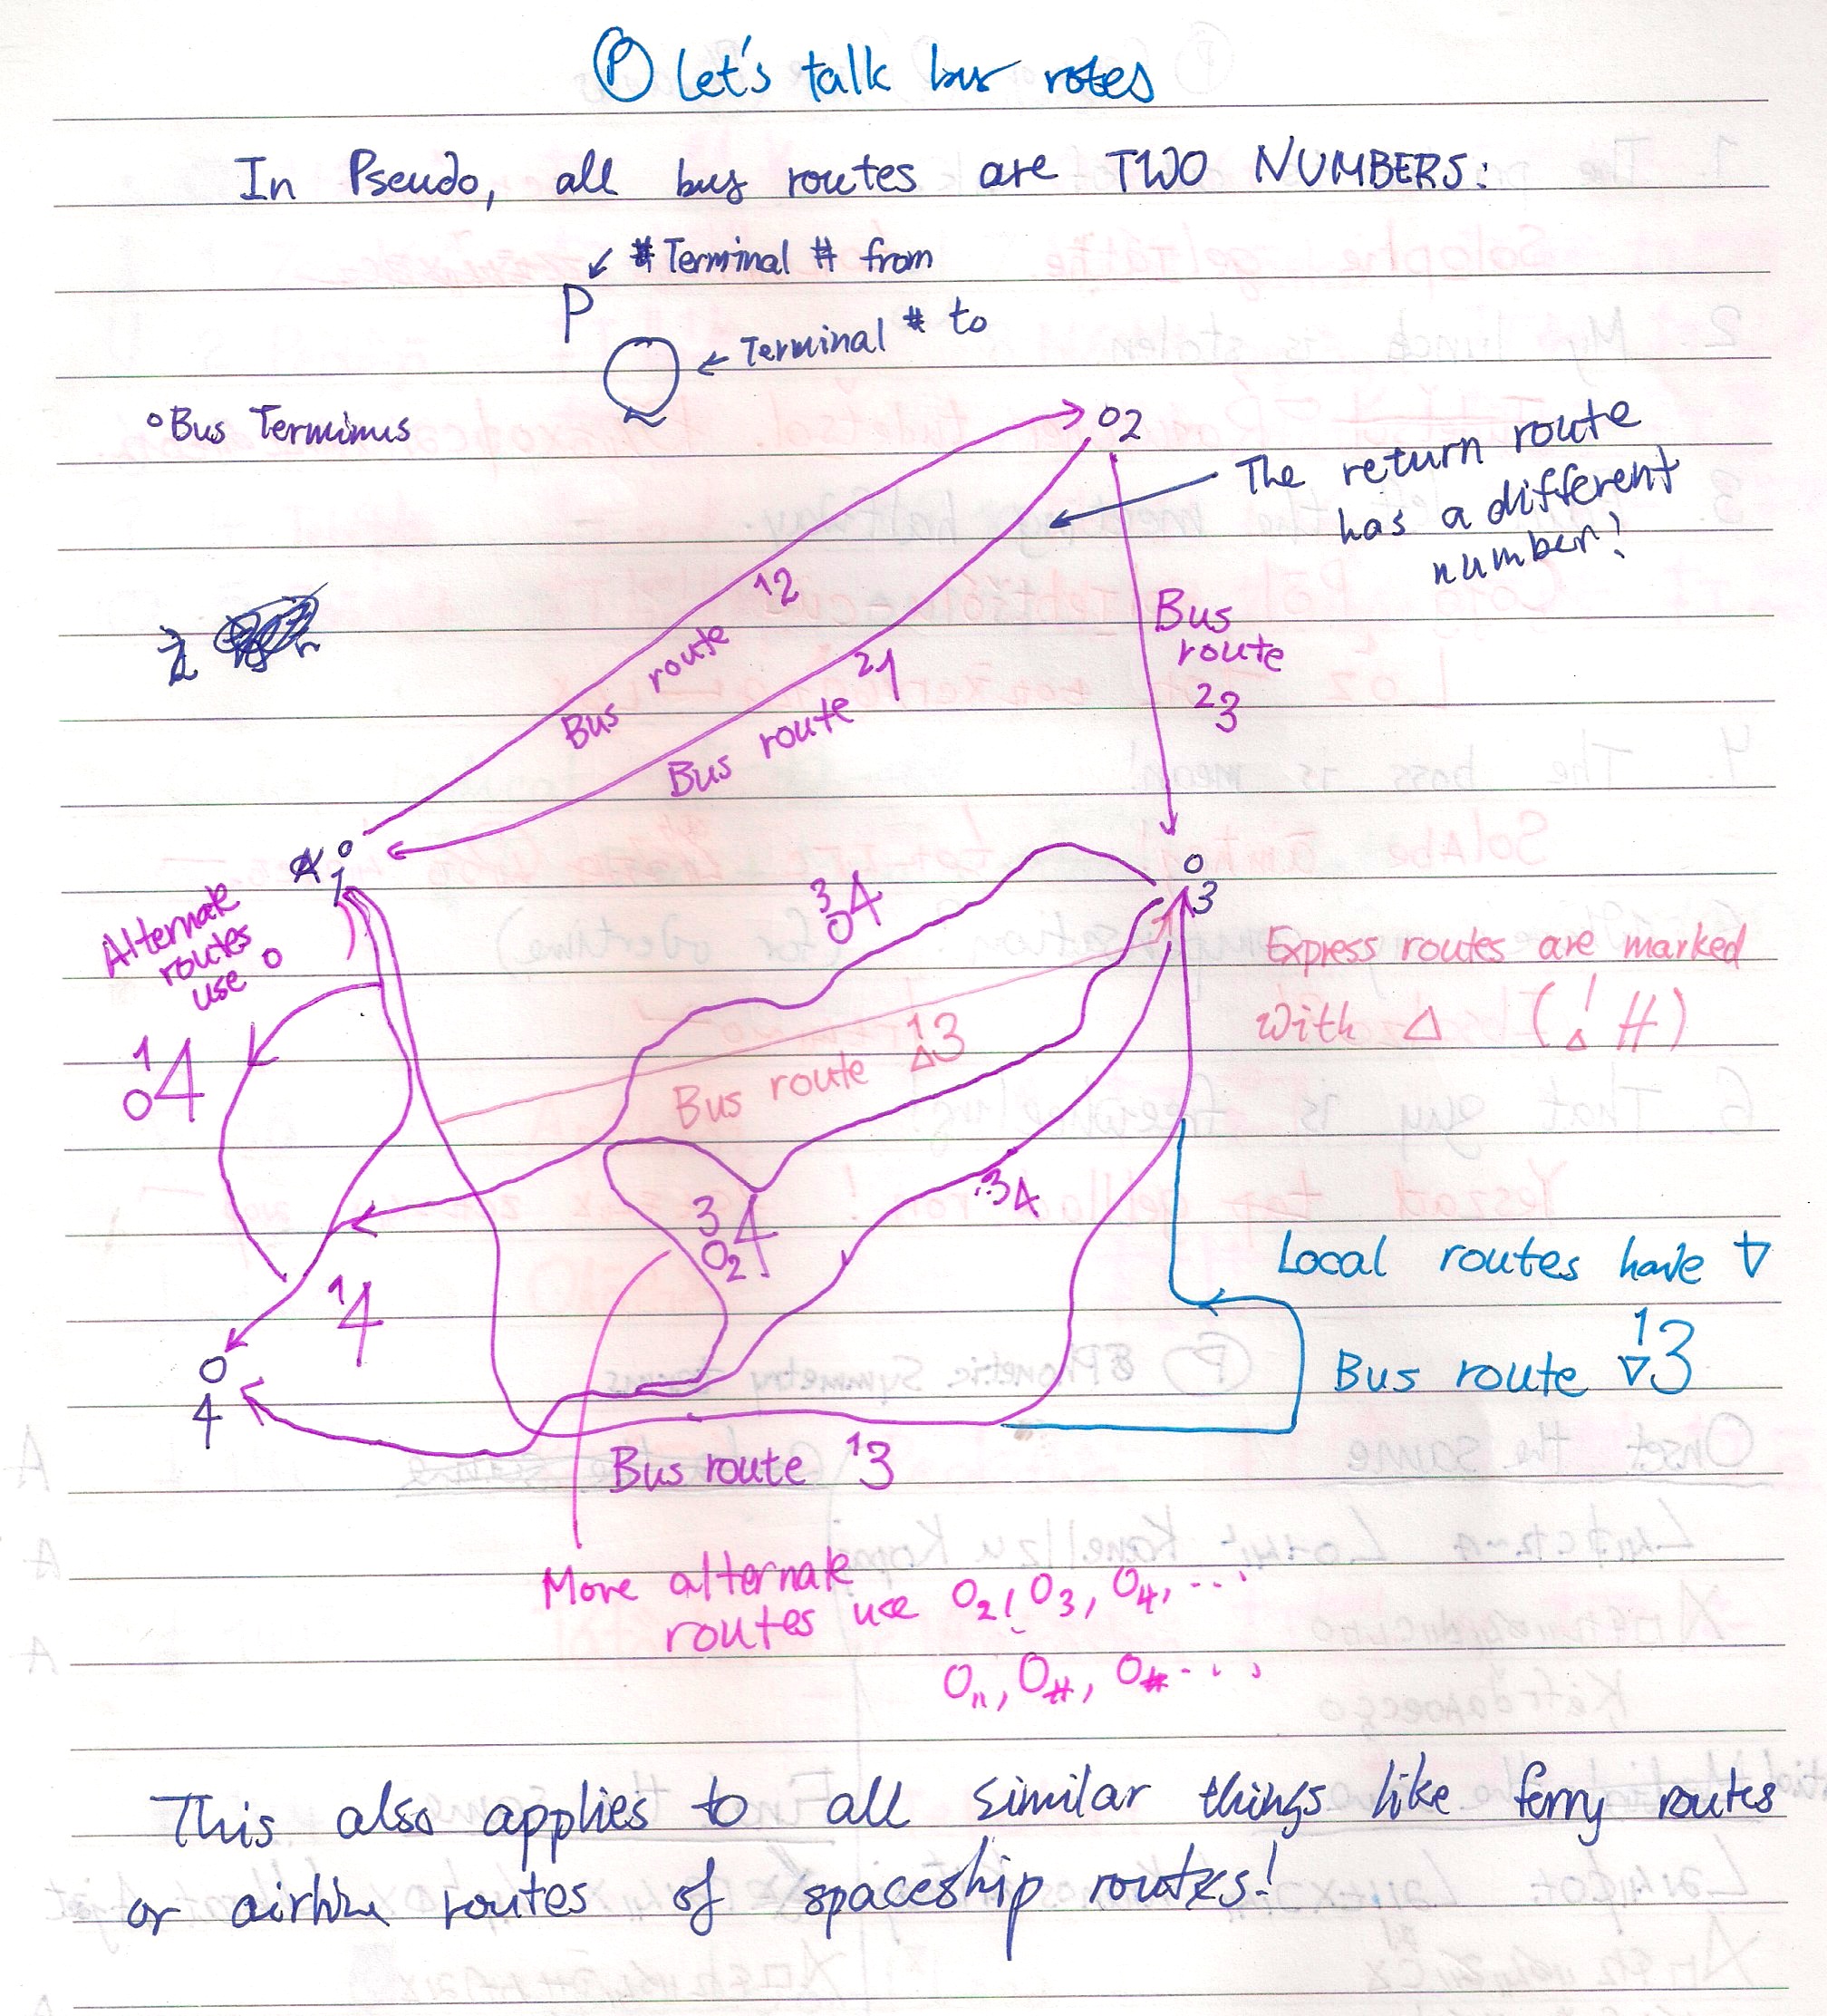 Ⓟ Let's talk bus rotes
In Pseudo, all bus routes are TWO NUMBERS:
# Terminal # from
P
Q
Terminal # to
o Bus Terminus
o2
The return route
has a different
number!
Bus route 12
Bus route 21
Bus
route
23
o
1
o
3
Alternate
routes
use o
3 o 4
Express routes are marked
with △ (! △ #)
1 o 4
Bus route 1 △ 3
34
3 o2 4
Local routes have ▽
14
Bus route 1 ▽ 3
o
4
Bus route 13
More alternate
routes use o2, o3, o4, ...
o", o#, o# ...
This also applies to all similar things like ferry routes
or airline routes of spaceship routes!